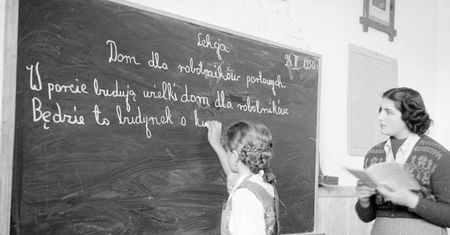 Lekcja
24 II 1950
Dom dla robotników portowych.
W porcie budują wielki dom dla robotników.
Będzie to budynek o